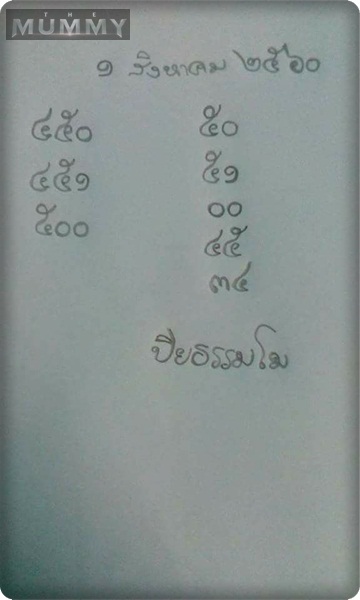 THE
MUMMY
๑ สิงหาคม ๒๕๖๐
๔๕๐ ๕๐
๔๕๑ ๕๑
๕๐๐ ๐๐
๔๕
๓๔
ปิยธรรมโม